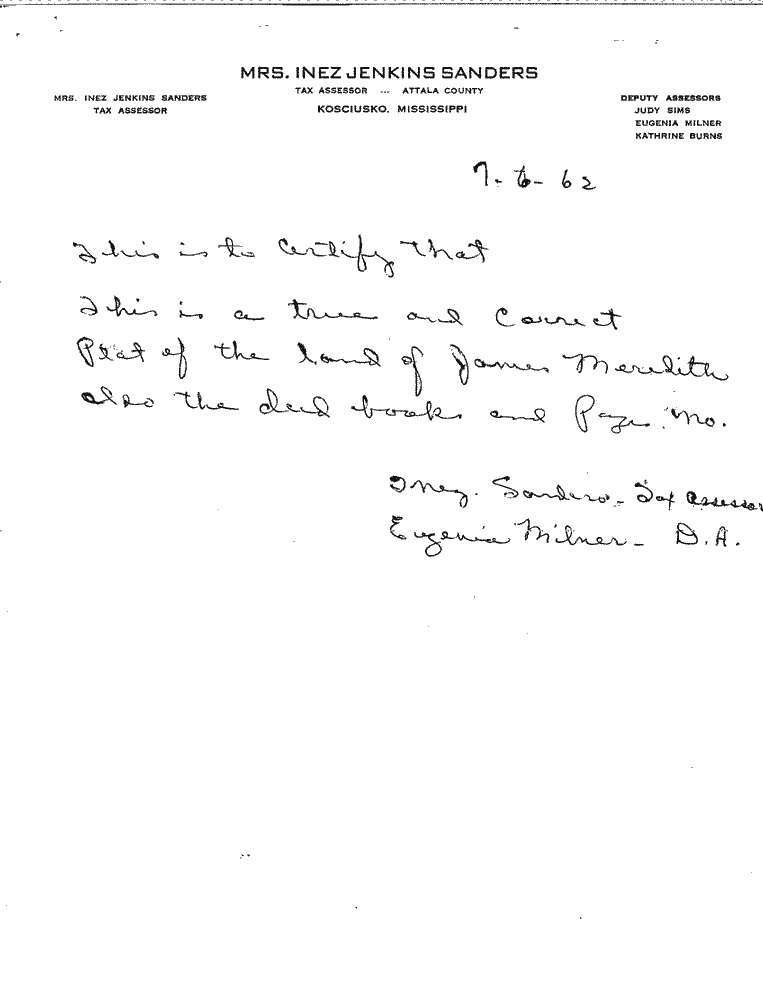 MRS. INEZ JENKINS SANDERS
TAX ASSESSOR ... ATTALA COUNTY
KOSCIUSKO, MISSISSIPPI
MRS. INEZ JENKINS SANDERS
TAX ASSESSOR
DEPUTY ASSESSORS
JUDY SIMS
EUGENIA MILNER
KATHRINE BURNS
7-6-62
This is to certify that
This is a true and correct
Plat of the land of James Meredith
also the deed books and Page No.
Inez. Sanders - Tax Assessor
Eugenia Milner - D.A.